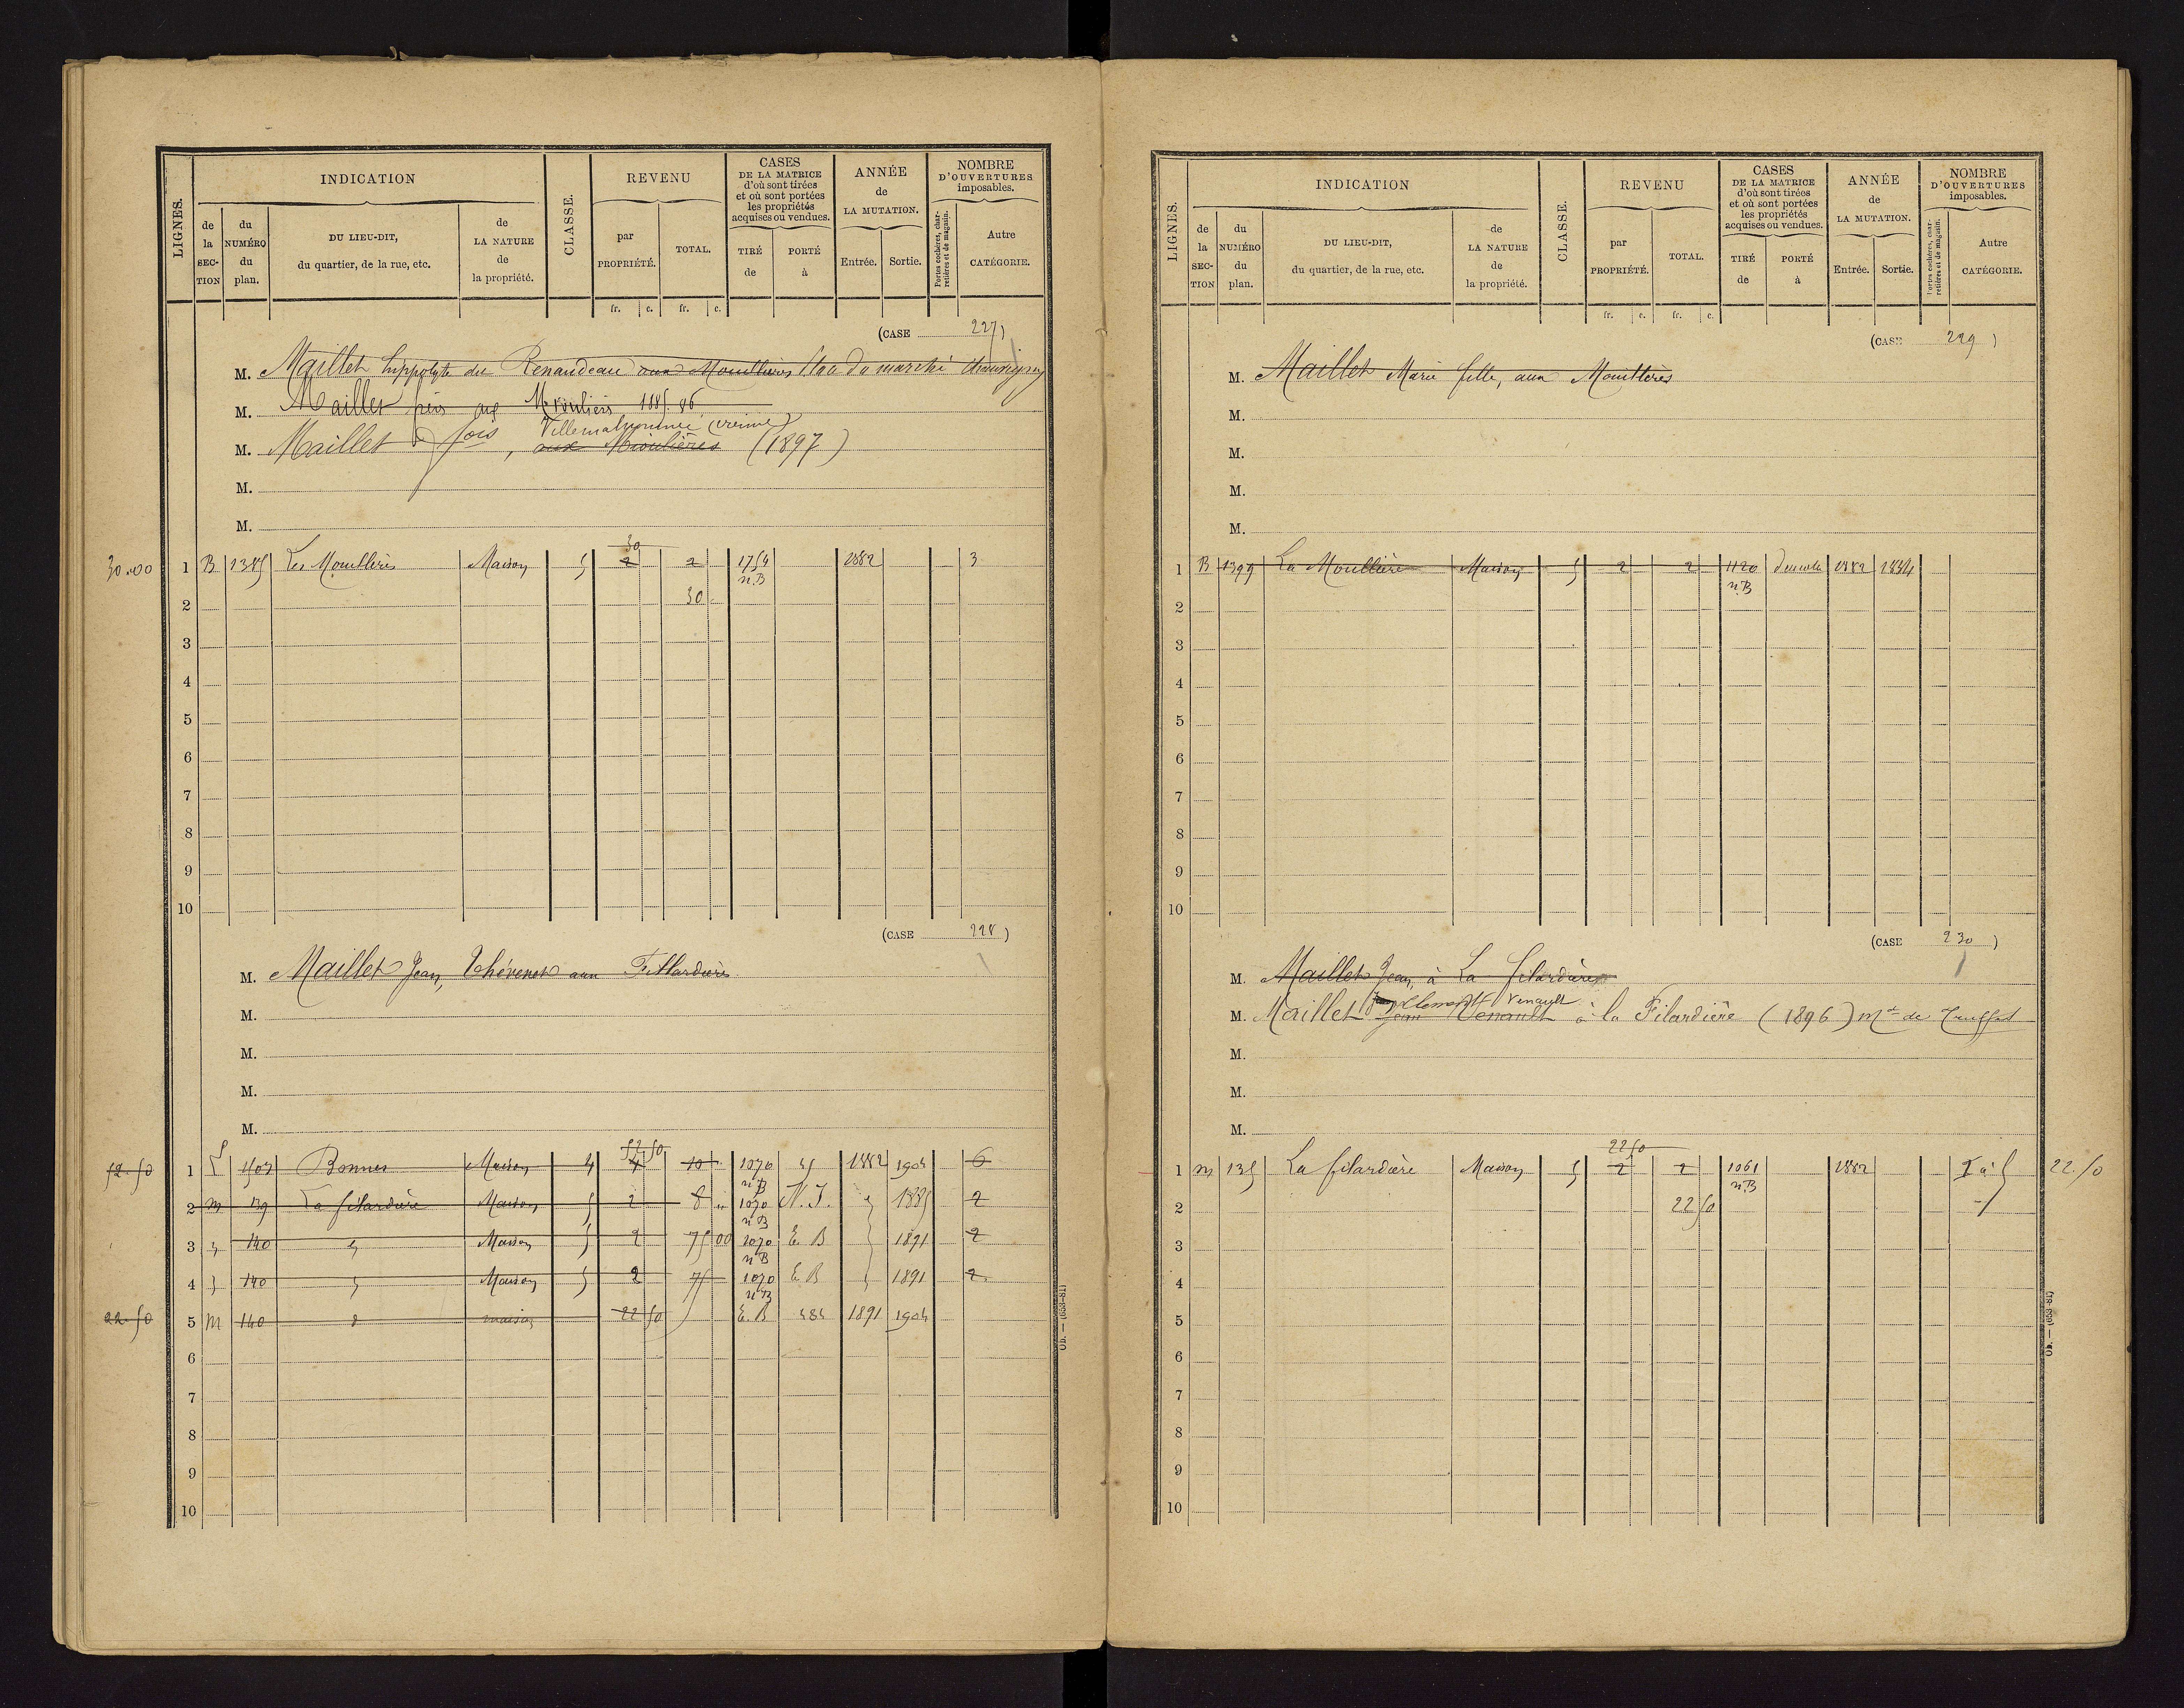 LIGNES.
INDICATION
de la SECTION
du NUMÉRO du plan.
DU LIEU-DIT, du quartier, de la rue, etc.
de LA NATURE de la propriété.
CLASSE.
REVENU
par PROPRIÉTÉ.
TOTAL.
CASES DE LA MATRICE d'où sont tirées et où sont portées les propriétés acquises ou vendues.
TIRÉ de
PORTÉ à
ANNÉE de LA MUTATION.
Entrée.
Sortie.
NOMBRE D'OUVERTURES imposables.
Portes cochères, charretières et de magasin.
Autre CATÉGORIE.
fr. c. fr. c.
(CASE 227)
M. Maillet hippolyte du Renaudeau aux Mouillères place du marché Chauvigny
M. Maillet frères aux Moulières 1885.86
Villemalnommée (vienne)
M. Maillet fois, aux Moulières (1897)
M.
M.
30
30.00 1 B 1385 Les Mouillères Maison 5 2 2 1754 n.B 1882 3
2 30
3
4
5
6
7
8
9
10
(CASE 228)
M. Maillet Jean, Thévenet aux Fillardières
M.
M.
M.
M.
52 50
52.50 1 L 1507 Bonnes Maison 4 4 10 1070 n B 45 1882 1904 6
2 m 139 La filardière Maison 5 2 8 1070 n B N.I. 1885 2
3 140 Maison 5 2 75 00 1070 n B E. B 1891 2
4 140 Maison 5 2 75 1070 n B E. B 1891 2
22.50 5 m 140 maison 22 50 E. B 484 1891 1904
6
7
8
9
10
LIGNES.
INDICATION
de la SECTION
du NUMÉRO du plan.
DU LIEU-DIT, du quartier, de la rue, etc.
de LA NATURE de la propriété.
CLASSE.
REVENU
par PROPRIÉTÉ.
TOTAL.
CASES DE LA MATRICE d'où sont tirées et où sont portées les propriétés acquises ou vendues.
TIRÉ de
PORTÉ à
ANNÉE de LA MUTATION.
Entrée.
Sortie.
NOMBRE D'OUVERTURES imposables.
Portes cochères, charretières et de magasin.
Autre CATÉGORIE.
fr. c. fr. c.
(CASE 229)
M. Maillet Marie fille, aux Mouillères
M.
M.
M.
M.
1 B 1399 La Mouillière Maison 5 2 2 1120 n.B 1882 1884
2
3
4
5
6
7
8
9
10
(CASE 230)
M. Maillet Jean, à La filardière
Clément Venault
M. Maillet Jean Venault à la Filardière (1896) md de Truffes
M.
M.
M.
22 50
1 m 135 La filardière Maison 5 2 2 1061 n.B 1882 22.50
2 22 50
3
4
5
6
7
8
9
10